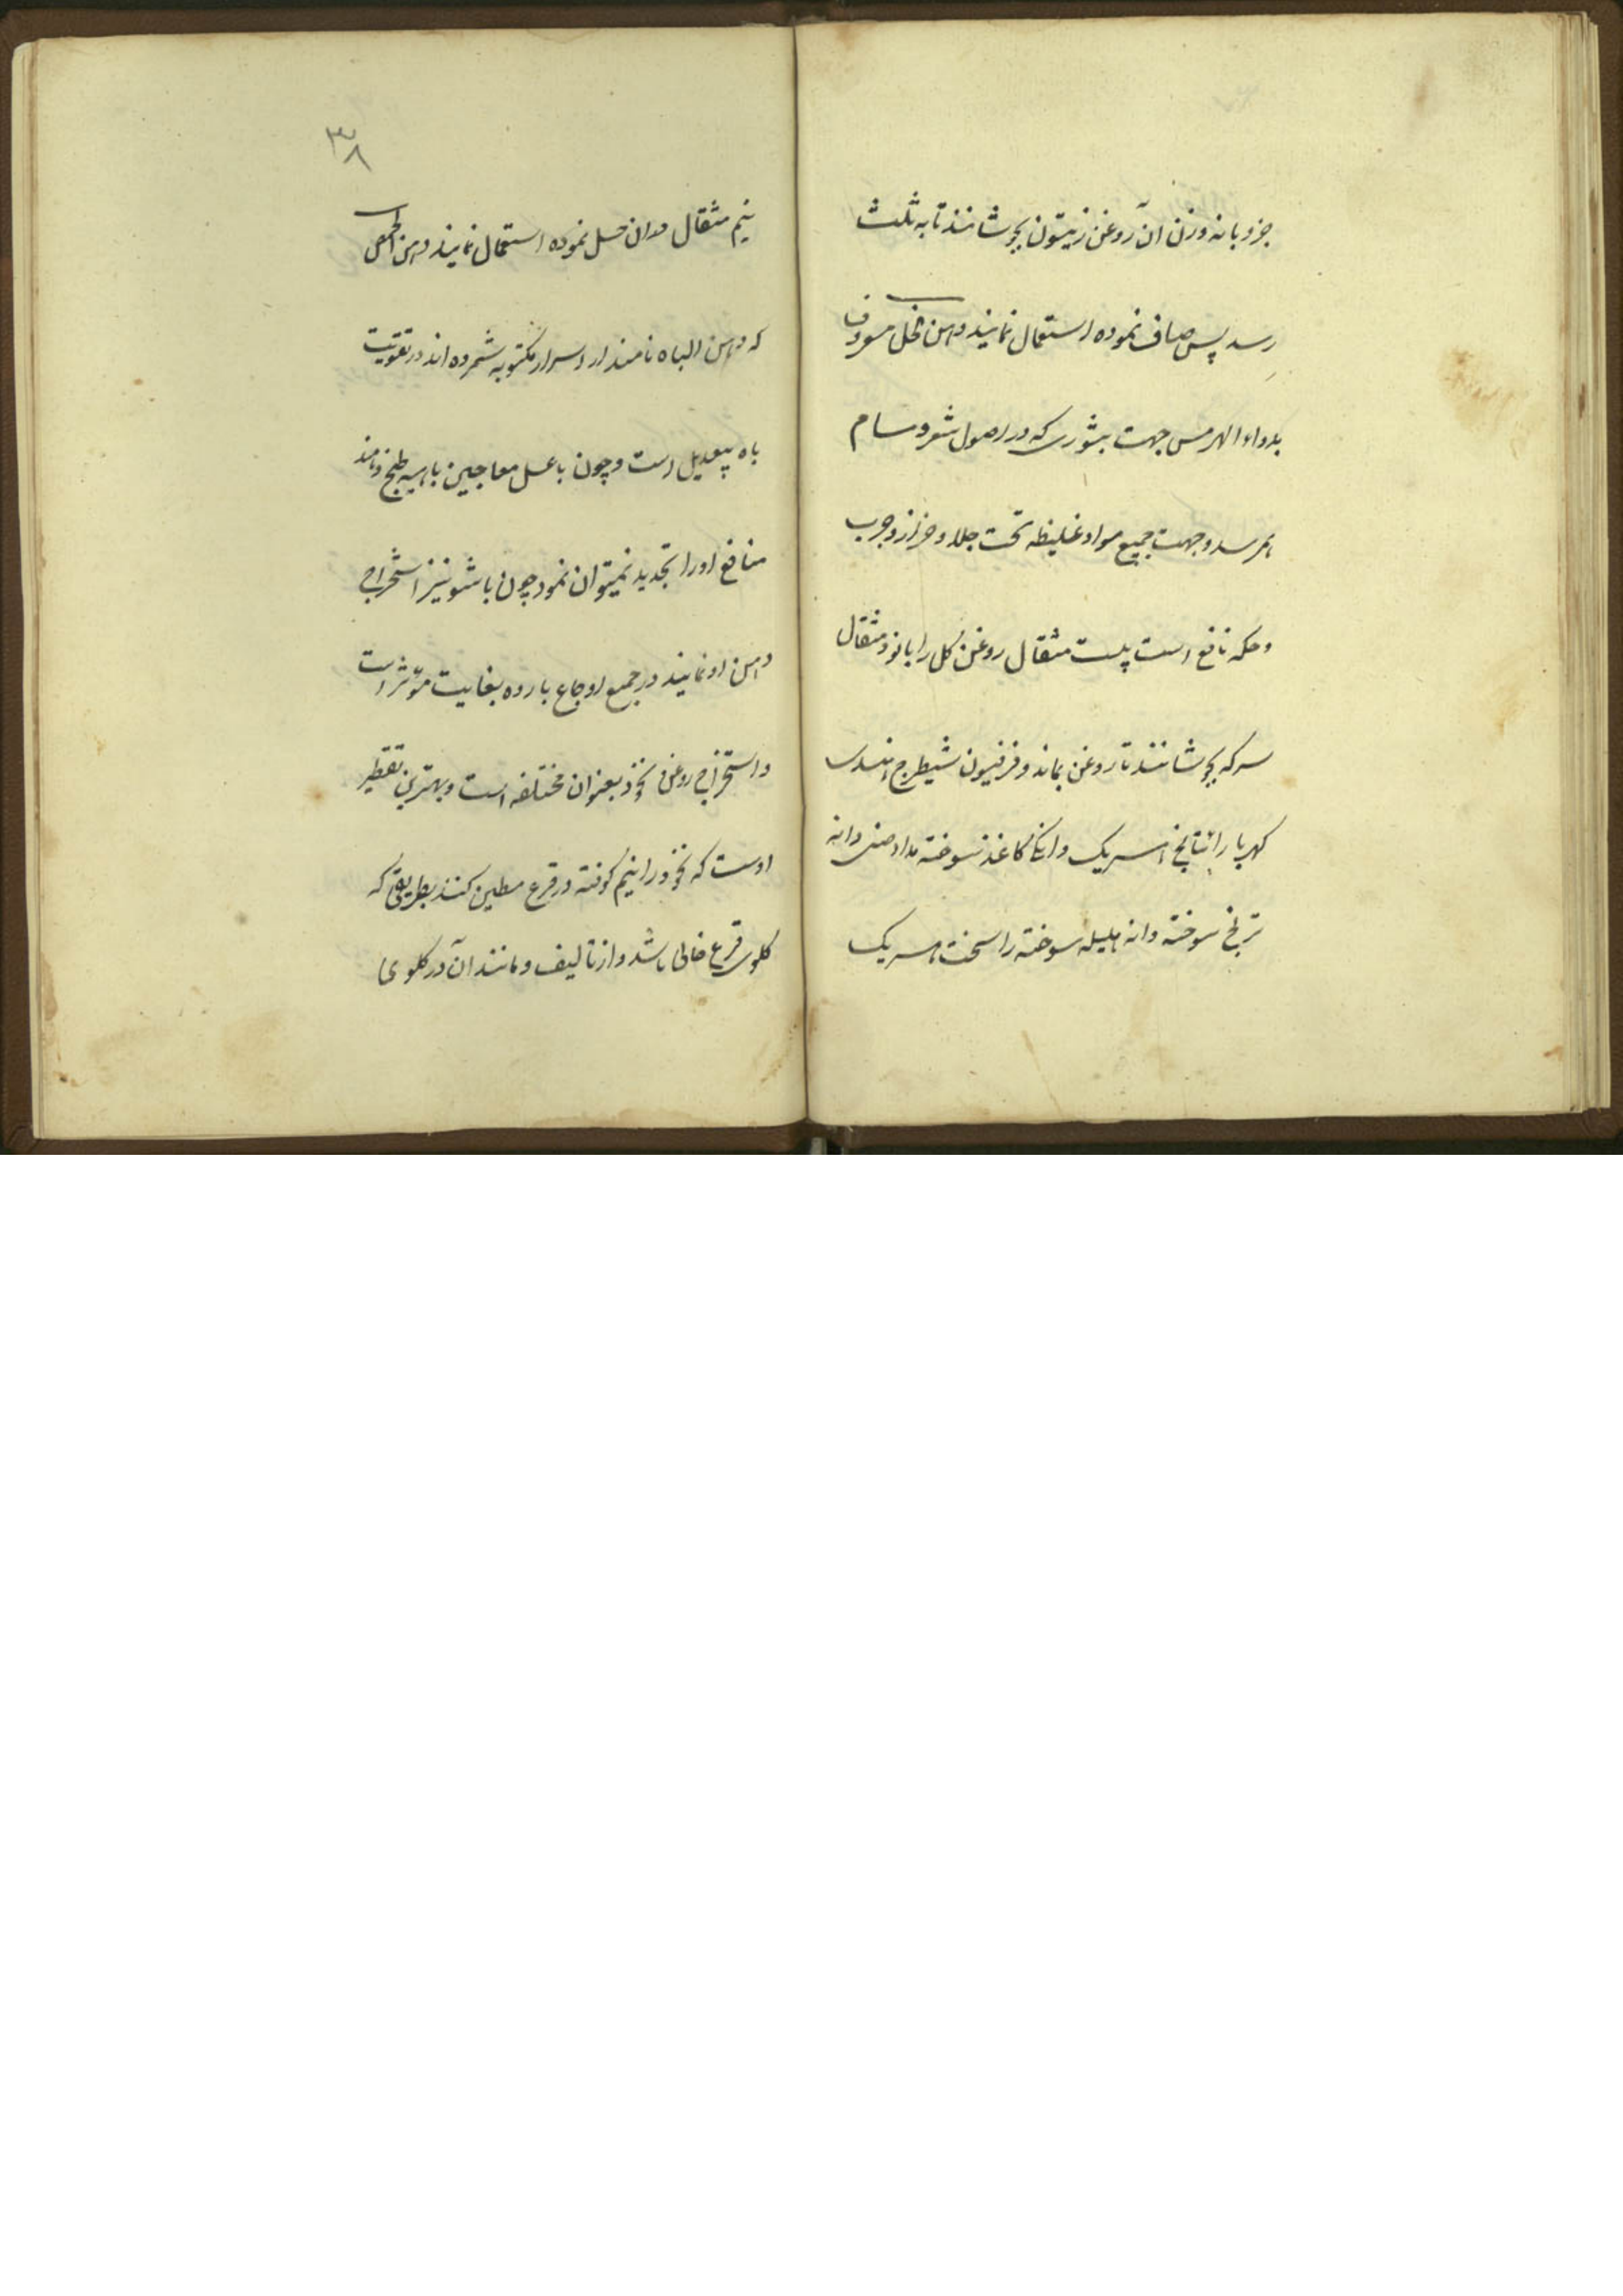 جزو با نه وزن آن روغن زیتون بجوشانند تا به ثلث
رسد پس صاف نموده استعمال نمایند دهن الخل معروف
بدواء الهرمس جهت بثوری که در اصول شعر و مسام
بهمرسد و جهت جمیع مواد غلیظه تحت جلد و حزاز و جرب
و حکه نافع است بیست مثقال روغن گل را با نود مثقال
سرکه بجوشانند تا روغن بماند و فرفیون شیطرج هندی
کهربا رائتیانج هریک کاغذ سوخته مداد دانه
ترنج سوخته دانه هلیله سوخته را سحت هریک
۳۸
نیم مثقال در آن حل نموده استعمال نمایند دهن الحمص
که دهن الباه نامند از اسرار مکتوبه شمرده اند در تقویت
باه بیعدیل است و چون با عسل معاجین باهیه طبخ دهند
منافع او را تجدید نمیتوان نمود چون با شونیز استخراج
دهن او نمایند در جمیع اوجاع بارده بغایت مؤثر است
و استخراج روغن نخود بعنوان مختلفه است و بهترین تقطیر
اوست که نخود را نیم کوفته در قرع مطین کنند بطریقی که
گلوی قرع خالی باشد و از تا لیف و مانند آن در گلوی